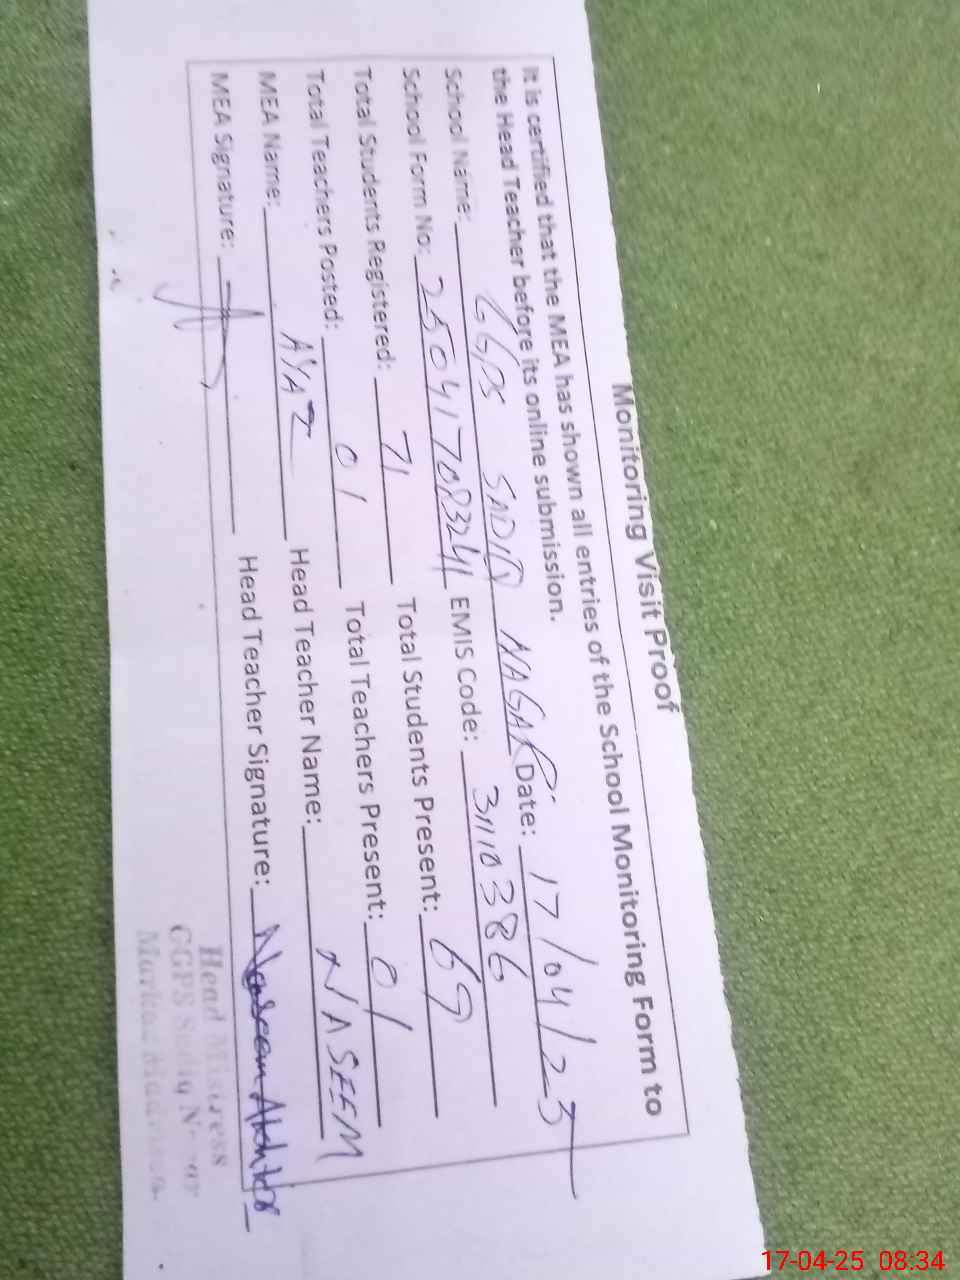 Monitoring Visit Proof
It is certified that the MEA has shown all entries of the School Monitoring Form to
the Head Teacher before its online submission.
School Name: GGPS SADIQ NAGAR Date: 17/04/25
School Form No: 250417083241 EMIS Code: 31110386
Total Students Registered: 71 Total Students Present: 69
Total Teachers Posted: 01 Total Teachers Present: 01
MEA Name: AYAZ Head Teacher Name: NASEEM
MEA Signature: Head Teacher Signature: Naseem Akhtar
Head Mistress
GGPS Sadiq Nagar
Markaz
17-04-25 08:34